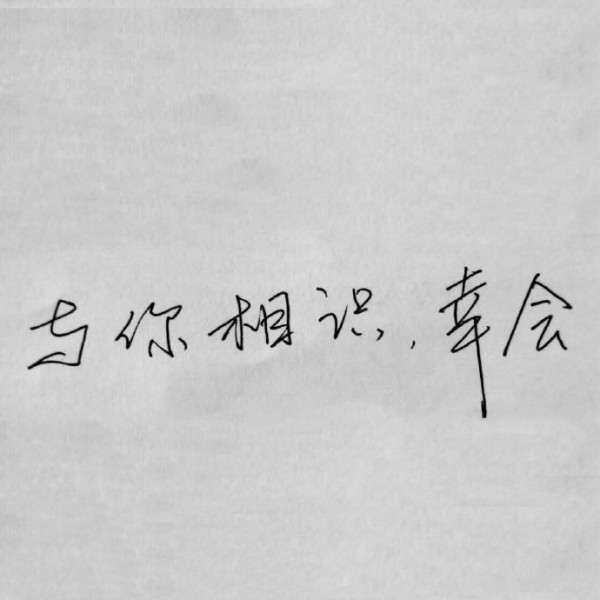 与你相识,幸会